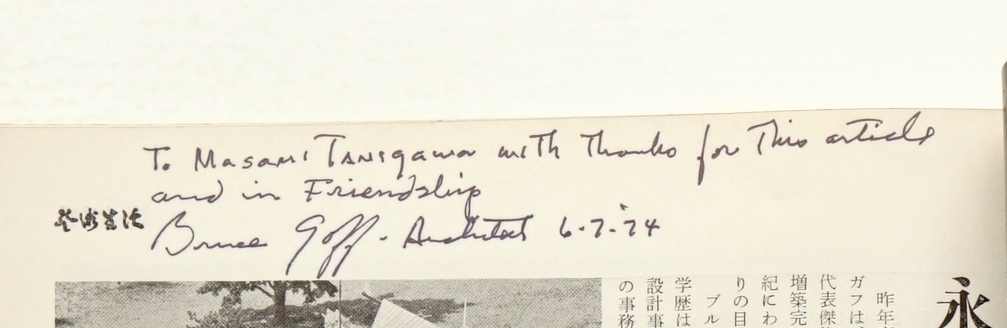 To Masami Tanigawa with thanks for this article
and in Friendship
Bruce Goff - Architect 6-7-74
芸術生活
永
昨年
ガフは
代表傑
増築完
紀にわ
りの目
ブル
学歴は
設計事
の事務